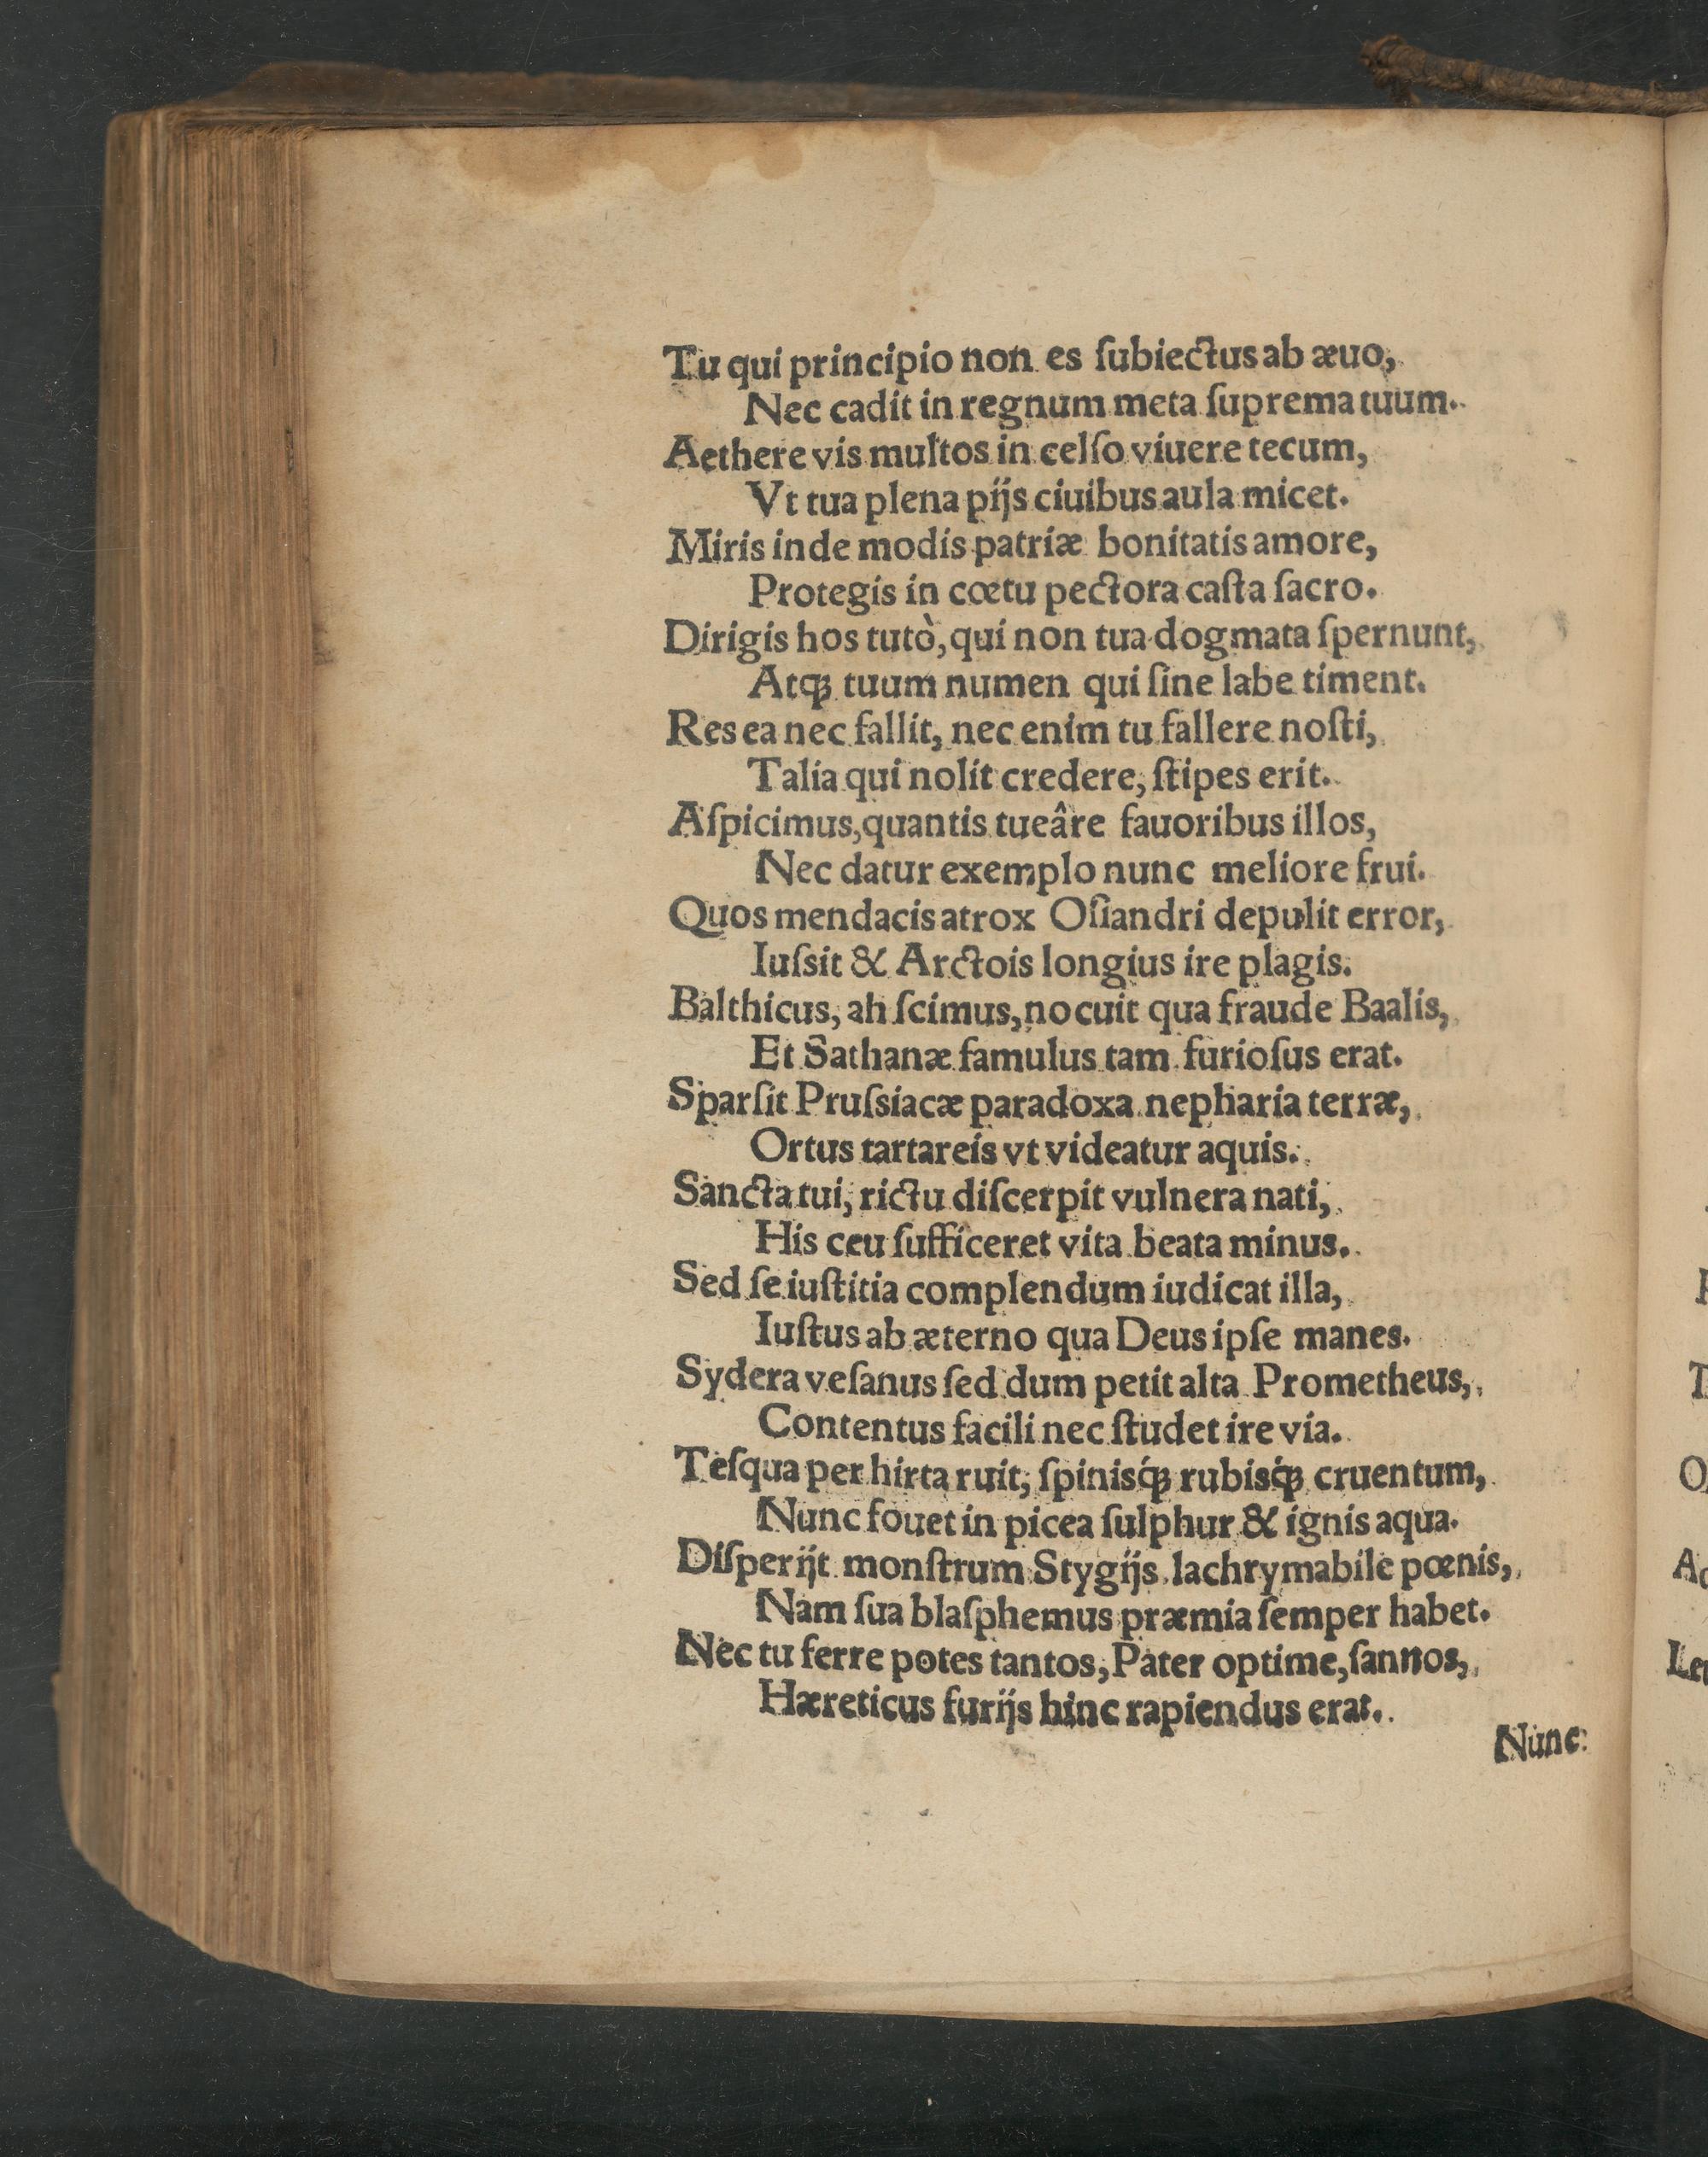 Tu qui principio non es ſubiectus ab æuo,
Nec cadit in regnum meta ſuprema tuum.
Aethere vis multos in celſo viuere tecum,
Vt tua plena pijs ciuibus aula micet.
Miris inde modis patriæ bonitatis amore,
Protegis in cœtu pectora caſta ſacro.
Dirigis hos tutò, qui non tua dogmata ſpernunt,
Atqꝫ tuum numen qui ſine labe timent.
Res ea nec fallit, nec enim tu fallere noſti,
Talia qui nolit credere, ſtipes erit.
Aſpicimus, quantis tueâre fauoribus illos,
Nec datur exemplo nunc meliore frui.
Quos mendacis atrox Oſiandri depulit error,
Iuſsit & Arctois longius ire plagis.
Balthicus, ah ſcimus, nocuit qua fraude Baalis,
Et Sathanæ famulus tam furioſus erat.
Sparſit Pruſsiacæ paradoxa nepharia terræ,
Ortus tartareis vt videatur aquis.
Sancta tui, rictu diſcerpit vulnera nati,
His ceu ſufficeret vita beata minus.
Sed ſe iuſtitia complendum iudicat illa,
Iuſtus ab æterno qua Deus ipſe manes.
Sydera veſanus ſed dum petit alta Prometheus,
Contentus facili nec ſtudet ire via.
Teſqua per hirta ruit, ſpinisq́ꝫ rubisq́ꝫ cruentum,
Nunc fouet in picea ſulphur & ignis aqua.
Diſperijt monſtrum Stygijs lachrymabile pœnis,
Nam ſua blaſphemus præmia ſemper habet.
Nec tu ferre potes tantos, Pater optime, ſannos,
Hæreticus furijs hinc rapiendus erat.
Nunc